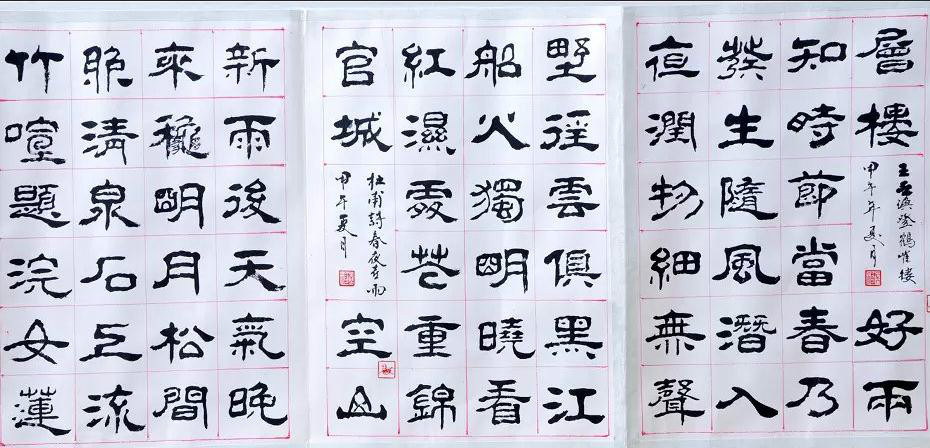 層樓
王之渙登鸛雀樓
甲午年夏月
好雨
知時節當春乃
發生隨風潛入
夜潤物細無聲
野徑雲俱黑江
船火獨明曉看
紅濕處花重錦
官城
杜甫詩春夜喜雨
甲午夏月
空山
新雨後天氣晚
來秋明月松間
照清泉石上流
竹喧歸浣女蓮